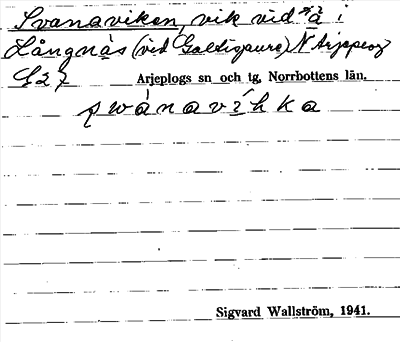 Svanaviken, vik vid å i
Långnäs (vid Galtispuure) N Arjeplog
L27
Arjeplogs sn och tg, Norrbottens län.
swánavìhka
Sigvard Wallström, 1941.